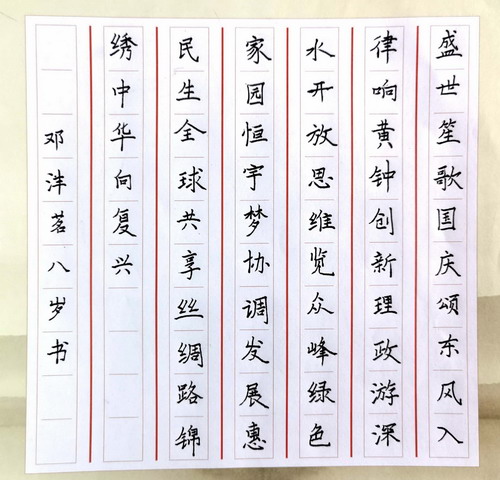 盛世笙歌国庆颂东风入
律响黄钟创新理政游深
水开放思维览众峰绿色
家园恒宇梦协调发展惠
民生全球共享丝绸路锦
绣中华向复兴
邓沣茗八岁书